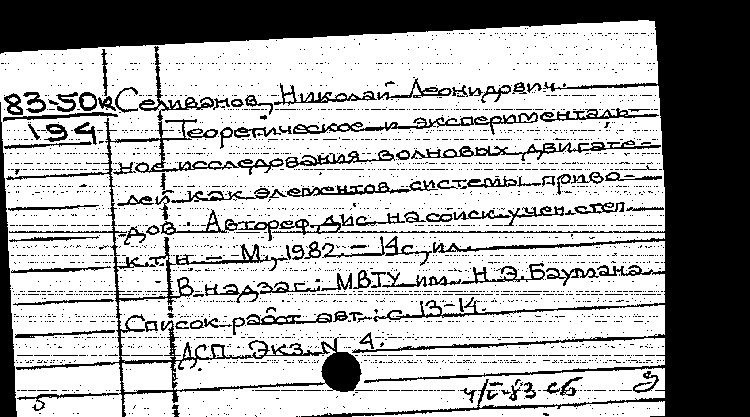 83-50к Селиванов, Николай Леонидович.
194 Теоретическое и эксперименталь-
ное исследования волновых двигате-
лей как элементов системы приво-
дов: Автореф. дис. на соиск. учен. степ.
к.т.н. – М., 1982. – 14с., ил.
В надзаг.: МВТУ им. Н.Э.Баумана.
Список работ авт.: с. 13-14.
ДСП. Экз. N 4.
-83 сб